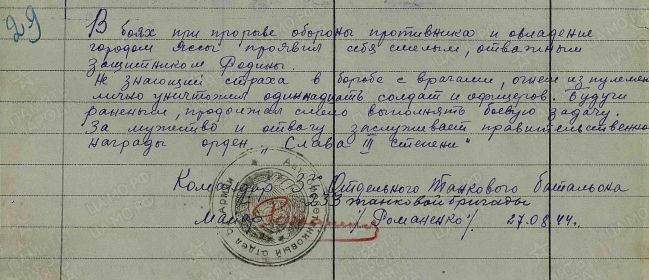 29
В боях при прорыве обороны противника и овладение
городом Яссы проявил себя смелым, отважным
защитником Родины.
Не знающий страха в борьбе с врагами, огнем из пулемета
лично уничтожил одиннадцать солдат и офицеров. Будучи
раненым, продолжал смело выполнять боевую задачу.
За мужество и отвагу заслуживает правительственной
награды орден "Слава III степени"
Командир 3го Отдельного Танкового батальона
233 танковой бригады
/Романенко/. 27.08.44г.